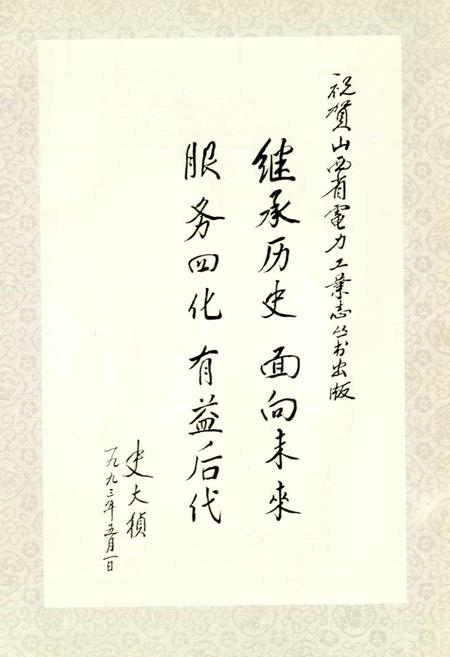 祝贺山西省電力工業志丛书出版
继承历史 面向未來
服务四化 有益后代
史大桢
一九九三年五月一日